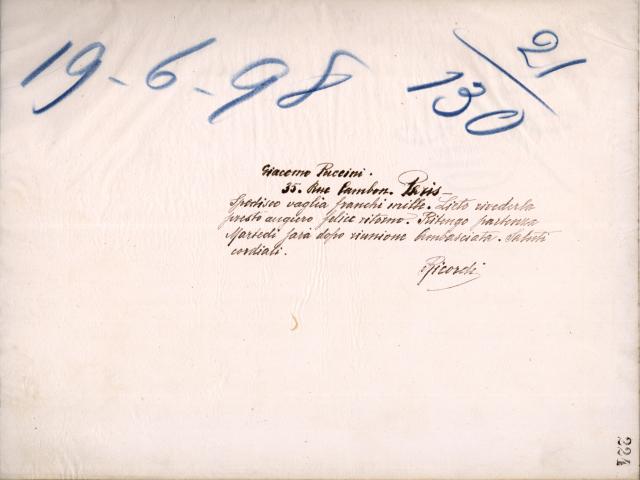 19-6-98
21/130
Giacomo Puccini.
35. Rue Cambon. Paris-
Spedisco vaglia franchi mille. Lieto rivederla
presto auguro felice ritorno. Ritengo partenza
Martedì sarà dopo riunione Ambasciata. Saluti
cordiali.
Ricordi
224